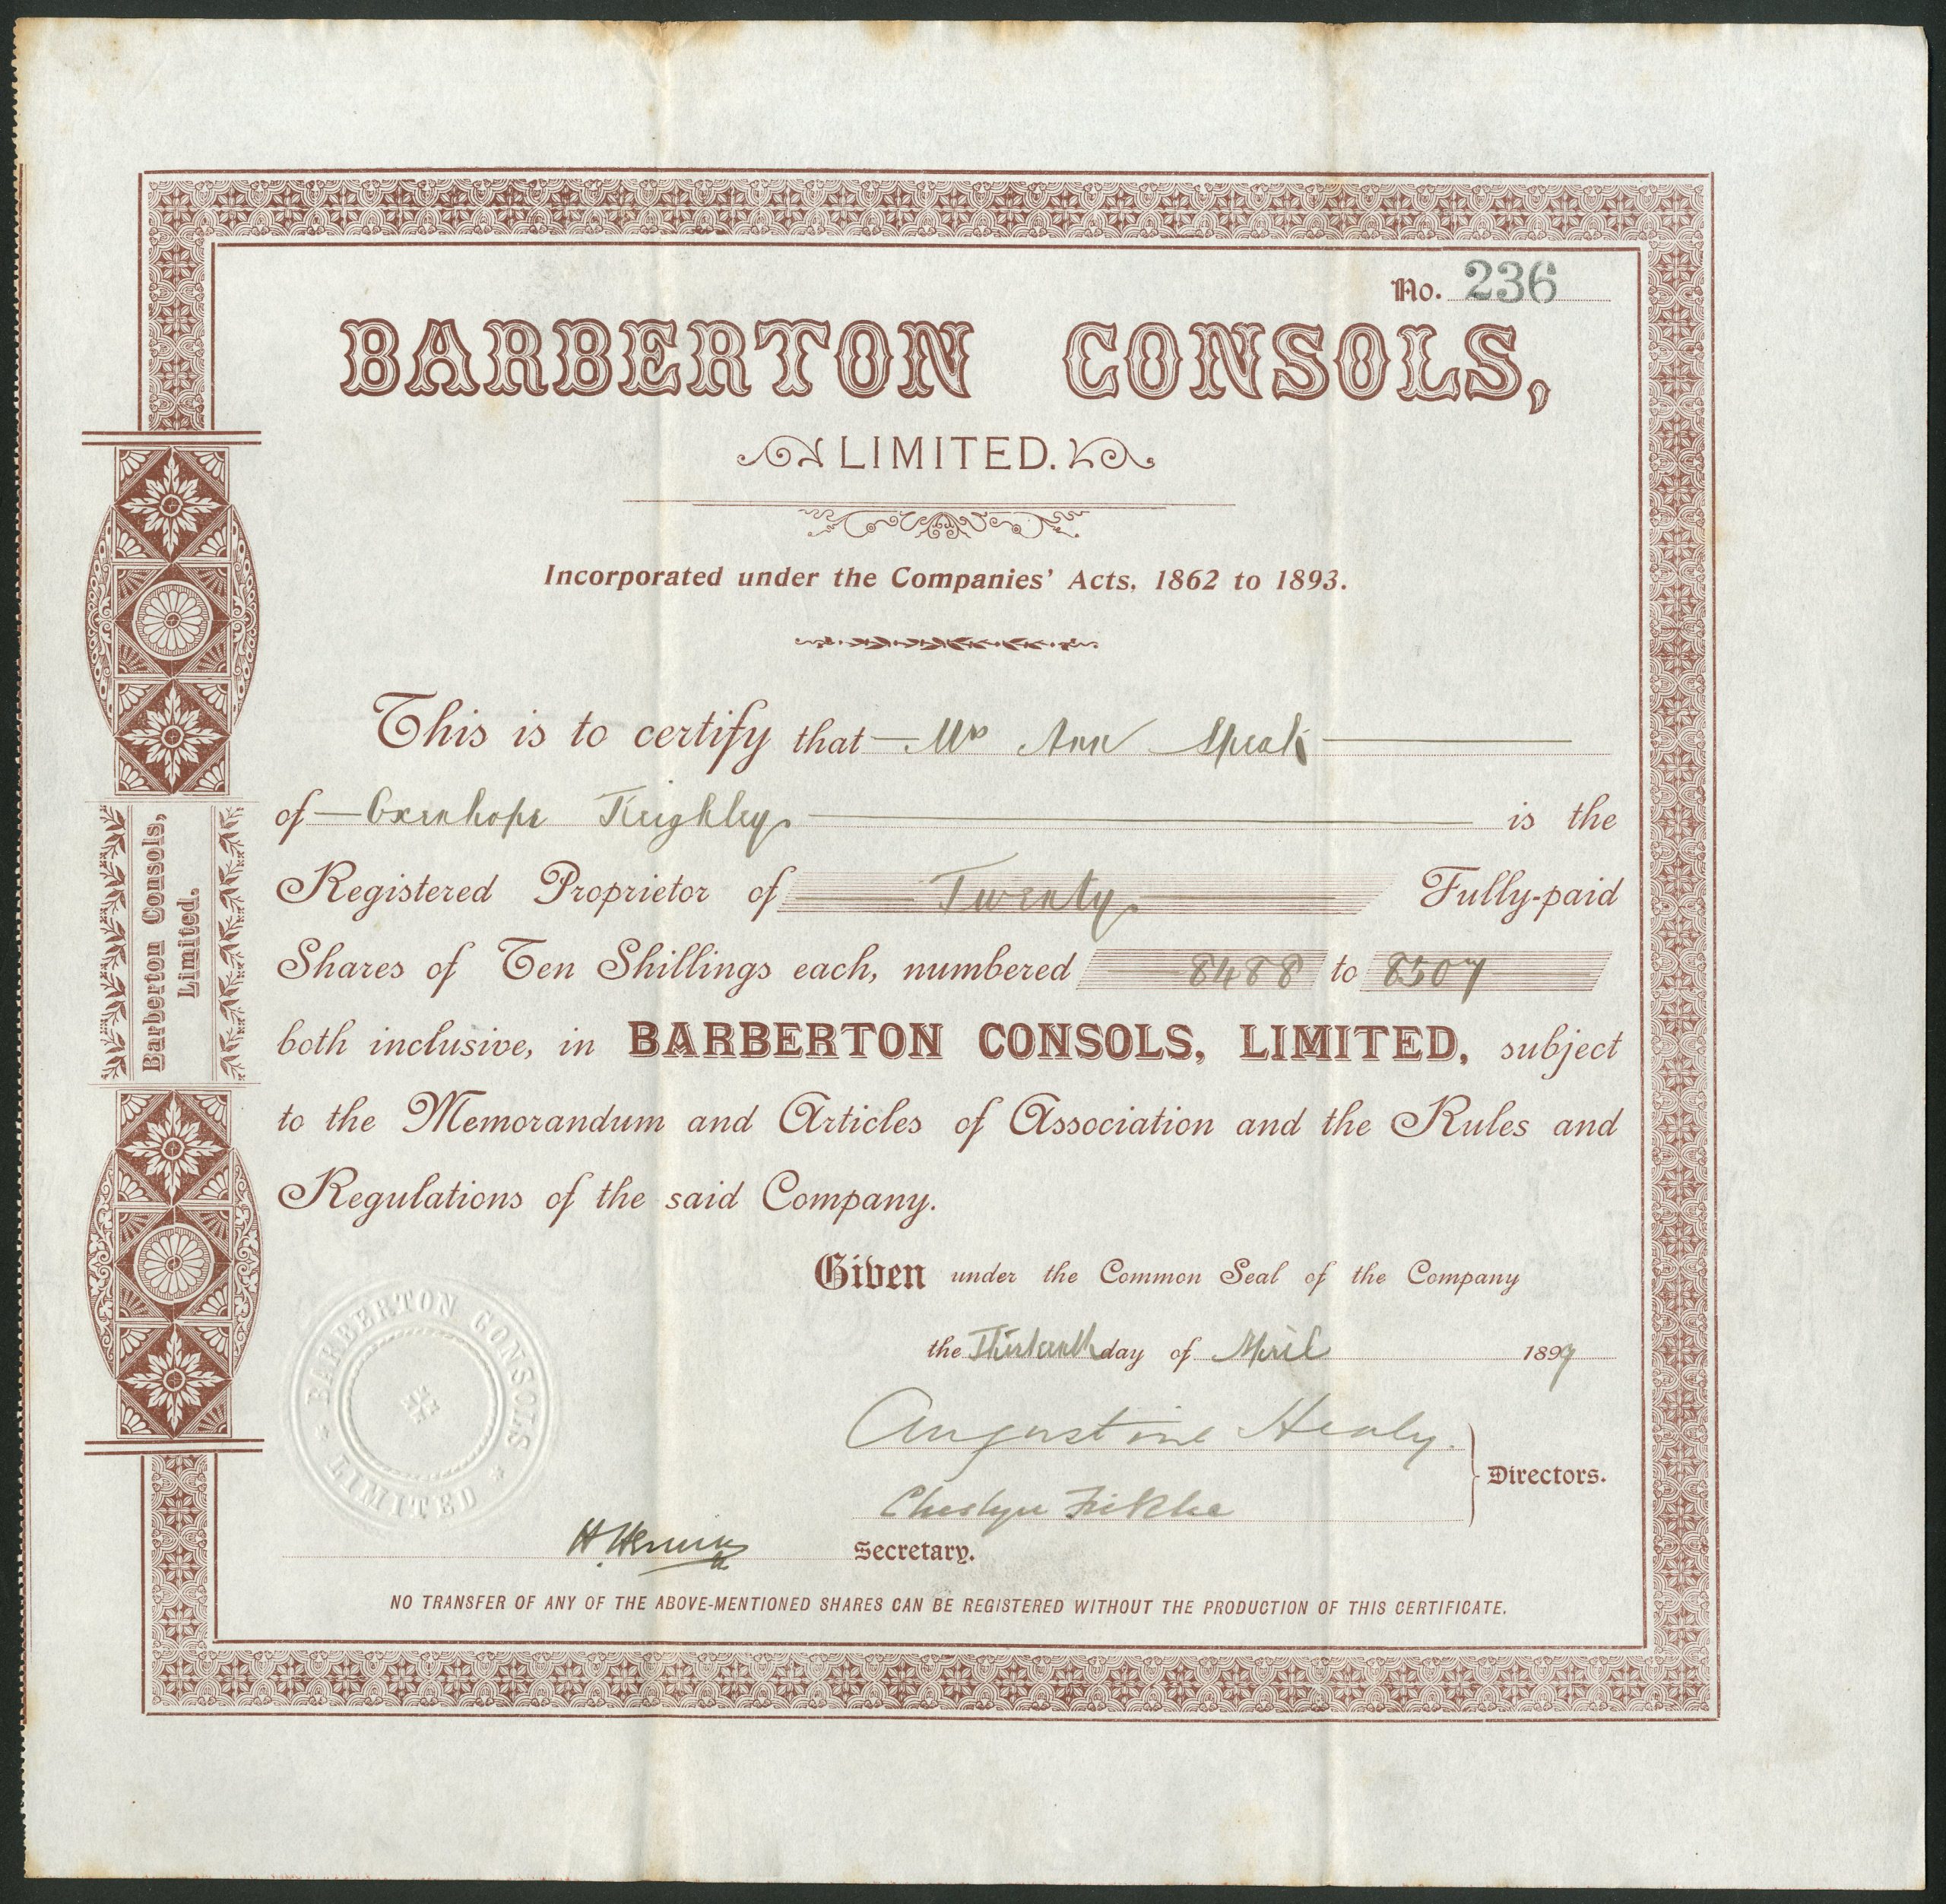 No. 236
BARBERTON CONSOLS,
LIMITED.
Incorporated under the Companies' Acts, 1862 to 1893.
This is to certify that Mrs Ann Speak
of Oxenhope Keighley is the
Registered Proprietor of Twenty Fully-paid
Shares of Ten Shillings each, numbered 8488 to 8507
both inclusive, in BARBERTON CONSOLS, LIMITED, subject
to the Memorandum and Articles of Association and the Rules and
Regulations of the said Company.
Given under the Common Seal of the Company
the Thirteenth day of April 1899
Augustine Healy.
Directors.
Secretary.
NO TRANSFER OF ANY OF THE ABOVE-MENTIONED SHARES CAN BE REGISTERED WITHOUT THE PRODUCTION OF THIS CERTIFICATE.
Barberton Consols,
Limited.
BARBERTON CONSOLS
LIMITED